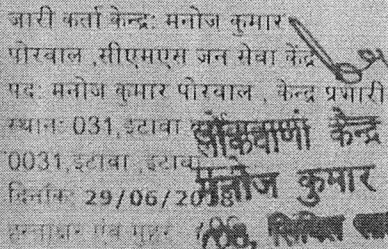 जारी कर्ता केन्द्र: मनोज कुमार
पोरवाल ,सीएमएस जन सेवा केंद्र
पद: मनोज कुमार पोरवाल , केन्द्र प्रभारी
स्थान: 031,इटावा
लोकवाणी केन्द्र
0031,इटावा ,इटावा
मनोज कुमार
दिनांक: 29/06/2018
हस्ताक्षर एंव मुहर